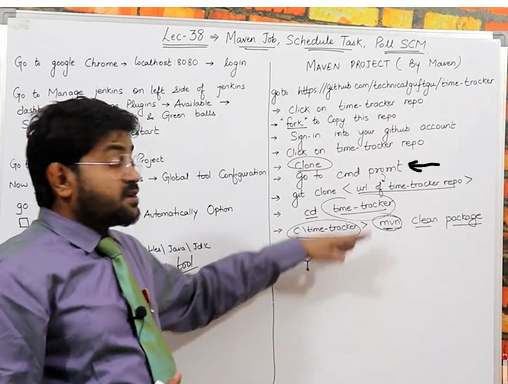 Lec-38 → Maven Job, Schedule Task, Poll SCM
Go to google Chrome → localhost:8080 → login
Go to Manage jenkins on left side of jenkins
Plugins → Available →
& Green balls
Project
→ Global tool Configuration
Now
go
Automatically Option
\Java\Jdk
tool
MAVEN PROJECT (By Maven)
goto https://github.com/technicalguftgu/time-tracker
→ Click on time-tracker repo
→ "fork" to Copy this repo
→ Sign-in into your github account
→ Click on time-tracker repo
→ Clone
→ Go to cmd promt
→ git clone <url of time-tracker repo>
→ cd time-tracker
→ C\time-tracker> mvn clean package